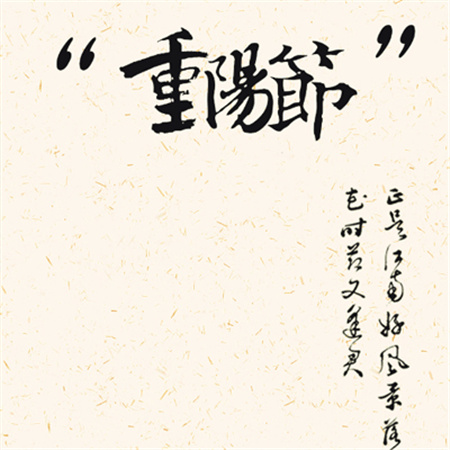 “重陽節”
正是江南好風景落
花时节又逢君